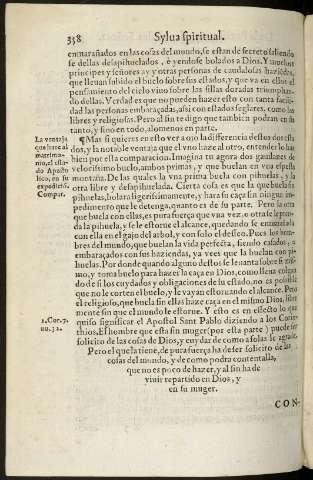 358 Sylua spiritual.
enmarañados en las cosas del mundo, se estan de secreto saliendo
se dellas desapihuelados, ò yendose bolados a Dios. Y muchos
principes y señores ay y otras personas de caudalosas haziédas,
que lleuan subido el buelo sobre sus estados, y que va en ellos el
pensamiento del cielo vino sobre las sillas doradas triumphan-
do dellas. Verdad es que no pueden hazer esto con tanta facili-
dad las personas embaraçadas, assi con estados seglares, como las
libres y religiosas. Pero al fin te digo que tambien podran en su
tanto, y sino en todo, alomenos en parte.
¶Mas si quieres en esto ver a ojo la differencia destos dos esta
dos, y la notable ventaja que el vno haze al otro, entender lo has
bien por esta comparacion. Imagina tu agora dos gauilanes de
velocissimo buelo, ambos primas, y que buelan en vna espessa
montaña. De las quales la vna prima buela con pihuelas, y la
otra libre y desapihuelada. Cierta cosa es que la que buela sin
pihuelas, bolara ligerissimamente, y hara su caça sin ningun im-
pedimento que le detenga, quanto es de su parte. Pero la otra
que buela con ellas, es pura fuerça que vna vez o otra se le pren-
da la pihuela, y se le estorue el alcance, quedando se enmarañada
con ella en el gajo del arbol, y con solo el desseo. Pues los hom-
bres del mundo, que buelan la vida perfecta, siendo casados, o
embaraçados con sus haziendas, ya vees que la buelan con pi-
huelas. Por donde quando alguno destos se leuanta sobre si mis-
mo, y toma buelo para hazer la caça en Dios, como lleua colgan
do de si los cuydados y obligaciones de su estado, no es possible
que no le corten el buelo, y le vayan estoruando el alcance. Pero
el religioso, que buela sin ellas haze caça en el mismo Dios, libre
mente sin que el mundo le estorue. Y esto es en effecto lo que
quiso significar el Apostol Sant Pablo diziendo a los Corin-
thios, El hombre que esta sin muger (por esta parte) puede ser
solicito de las cosas de Dios, y cuydar de como a solas le agrade.
Pero el que la tiene, de pura fuerça ha de ser solicito de las
cosas del mundo, y de como podra contentalla,
que no es poco de hazer, y al fin ha de
viuir repartido en Dios, y
en su muger.
CON-
La ventaja
que haze al
matrimo-
nio, el esta-
do Aposto
lico, en su
expedició.
Compar.
1. Cor. 7.
nu. 32.